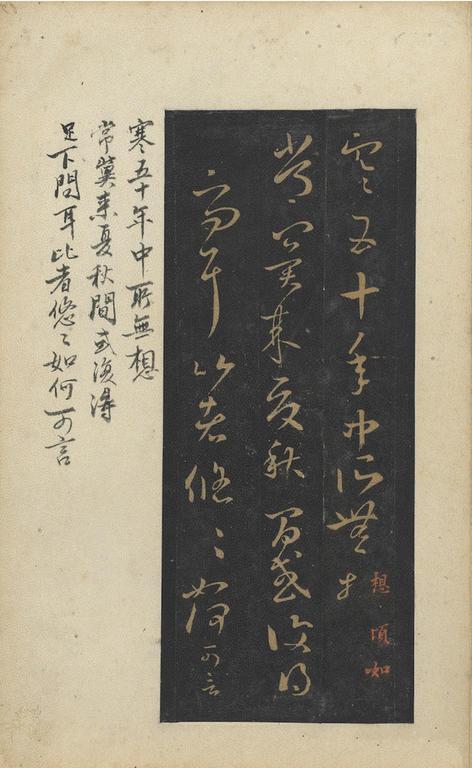 寒五十年中所無
想頃如
常冀來夏秋間或復得
下問耳比者悠〻如何可言
寒五十年中所無想
常冀來夏秋間或復得
足下問耳比者悠〻如何可言